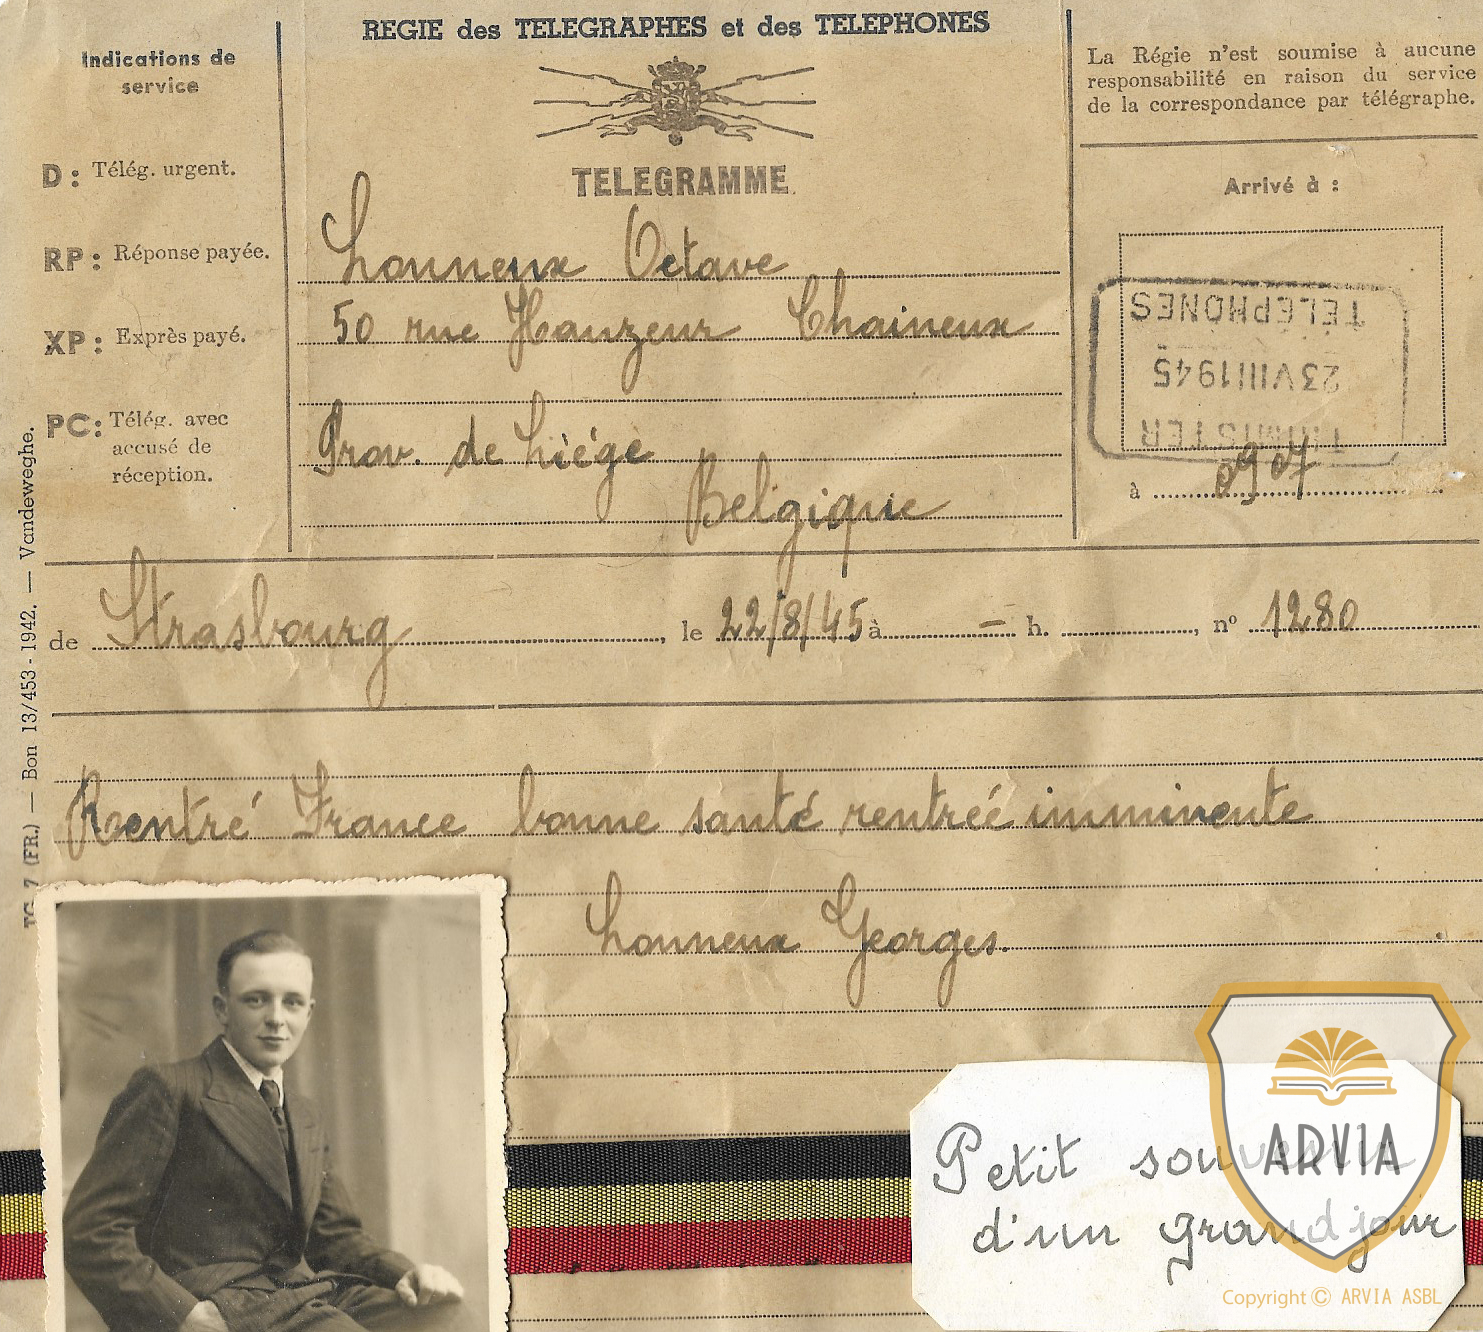 REGIE des TELEGRAPHES et des TELEPHONES
Indications de
service
D : Télég. urgent.
RP : Réponse payée.
XP : Exprès payé.
PC : Télég. avec
accusé de
réception.
TELEGRAMME
Lonneux Octave
50 rue Hauzeur Chaineux
Prov. de Liége
Belgique
La Régie n'est soumise à aucune
responsabilité en raison du service
de la correspondance par télégraphe.
Arrivé à :
TELEPHONES
23 VIII 1945
à 0907
de Strasbourg, le 22/8/45 à – h. , nº 1280
Rentré France bonne santé rentréé imminente
Lonneux Georges.
TG. 7 (FR.) — Bon 13/453 - 1942. — Vandeweghe.
Petit souvenir
d'un grand jour
ARVIA
Copyright © ARVIA ASBL